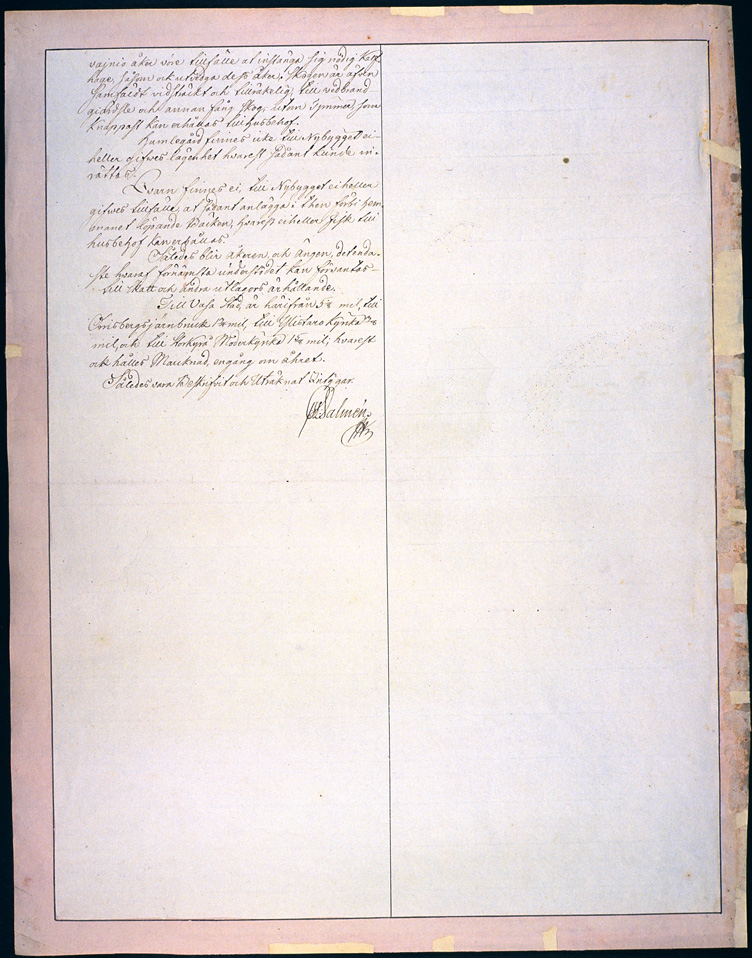 vainio åker vore tillfälle at instänga sig nödig Kalf
hage, såsom ock utwidga dess åker. Skogen är äfven
samfäldt vidsträckt och tillräkelig, till vedbrand
giärdsle och annan fång skog, utom Timmer, som
knappast kan erhållas till husbehof.
Humlegård finnes icke till Nybygget ei-
heller gifwes lägenhet hvarest sådant kunde in-
rättas.
Qvarn finnes ei, till Nybygget ei heller
gifwes tillfälle, at sådant anlägga i then förbi hem-
manet löpande Bäcken, hvarest ei heller fisk till
husbehof kan erhållas.
Således blir åkeren, och Ängen, det enda-
ste hvaraf förnämsta understödet kan förväntas
till skatt och andra utlagors ärhållande.
Till Vasa Stad, är härifrån 5⅛ mil, till
Orisbergs järnbruck mil, till Ylistaro kyrka
mil, och till Storkyro Moderkyrka mil; hvarest
ock hålles Marcknad, engång om åhret.
Således vara Beskrifvit och Uträknat Intygar.
Salmén